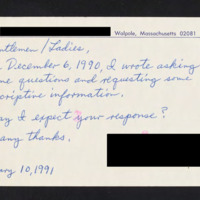 Walpole, Massachusetts 02081
ntlemen/Ladies,
December 6, 1990, I wrote asking
me questions and requesting some
criptive information.
ay I expect your response?
any thanks.
ary 10, 1991